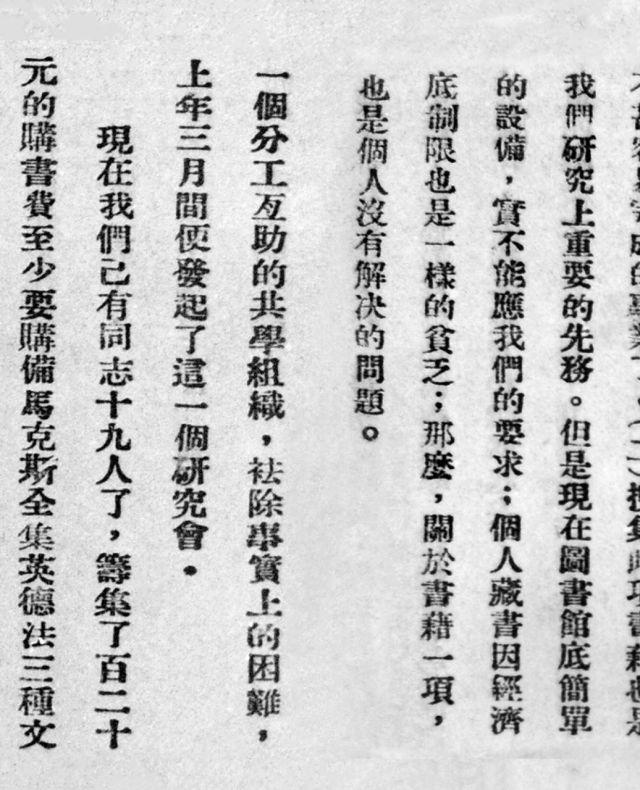 搜集此項書籍也是
我們研究上重要的先務。但是現在圖書館底簡單
的設備，實不能應我們的要求；個人藏書因經濟
底制限也是一樣的貧乏；那麼，關於書籍一項，
也是個人沒有解决的問題。
一個分工互助的共學組織，祛除事實上的困難，
上年三月間便發起了這一個研究會．
現在我們已有同志十九人了，籌集了百二十
元的購書費至少要購備馬克斯全集英德法三種文